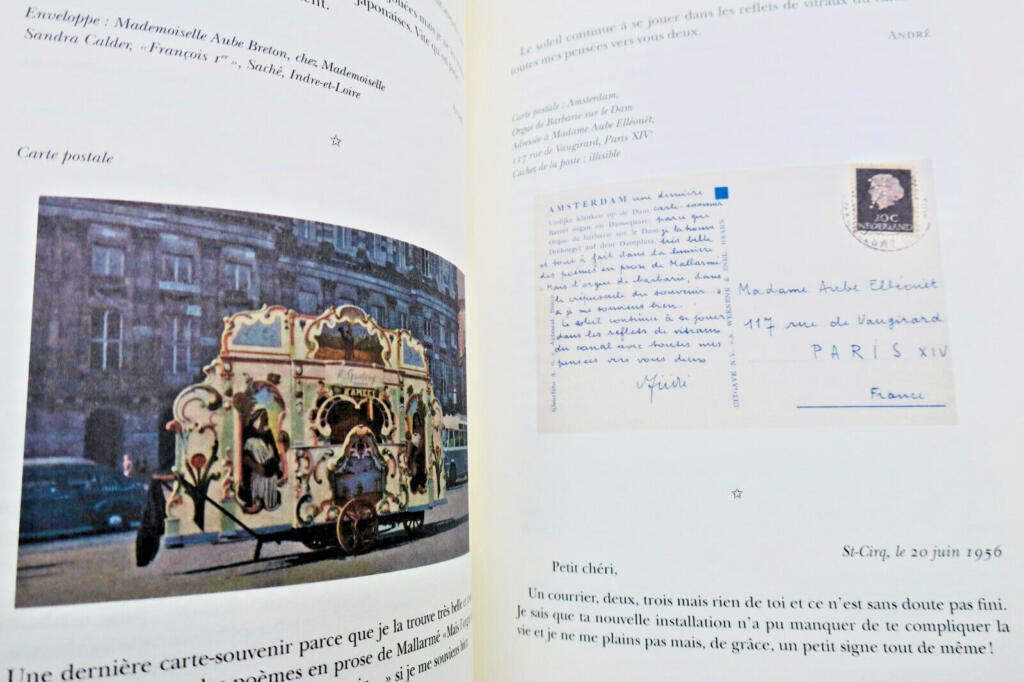 jouées mais je ne
nent.
japonaises. Vite qu'on
Enveloppe : Mademoiselle Aube Breton, chez Mademoiselle
Sandra Calder, « François 1er », Saché, Indre-et-Loire
☆
Carte postale
CARMEN
Une dernière carte-souvenir parce que je la trouve très belle et
poèmes en prose de Mallarmé « Mais l'orgue
... » si je me souviens
Le soleil continue à se jouer dans les reflets de vitraux du
toutes mes pensées vers vous deux.
ANDRÉ
Carte postale : Amsterdam,
Orgue de Barbarie sur le Dam
Adressée à Madame Aube Elléouët,
117 rue de Vaugirard, Paris XIVe
Cachet de la poste : illisible
AMSTERDAM
Vrolijke klanken op de Dam
Barrel organ on Damsquare
Orgue de barbarie sur le Dam
Drehorgel auf dem Damplatz
une dernière
carte-souvenir
parce que
je la trouve
très belle
et tout à fait dans la lumière
des poèmes en prose de Mallarmé
"Mais l'orgue de barbarie, dans
le crépuscule du souvenir..."
si je me souviens bien.
Le soleil continue à se jouer
dans les reflets de vitraux
du canal avec toutes mes
pensées vers vous deux
André
UITGAVE N.V. v/h WEENENK & SNEL BAARN
20C
NEDERLAND
Madame Aube Elléouët
117 rue de Vaugirard
PARIS XIV
France
☆
St-Cirq, le 20 juin 1956
Petit chéri,
Un courrier, deux, trois mais rien de toi et ce n'est sans doute pas fini.
Je sais que ta nouvelle installation n'a pu manquer de te compliquer la
vie et je ne me plains pas mais, de grâce, un petit signe tout de même !